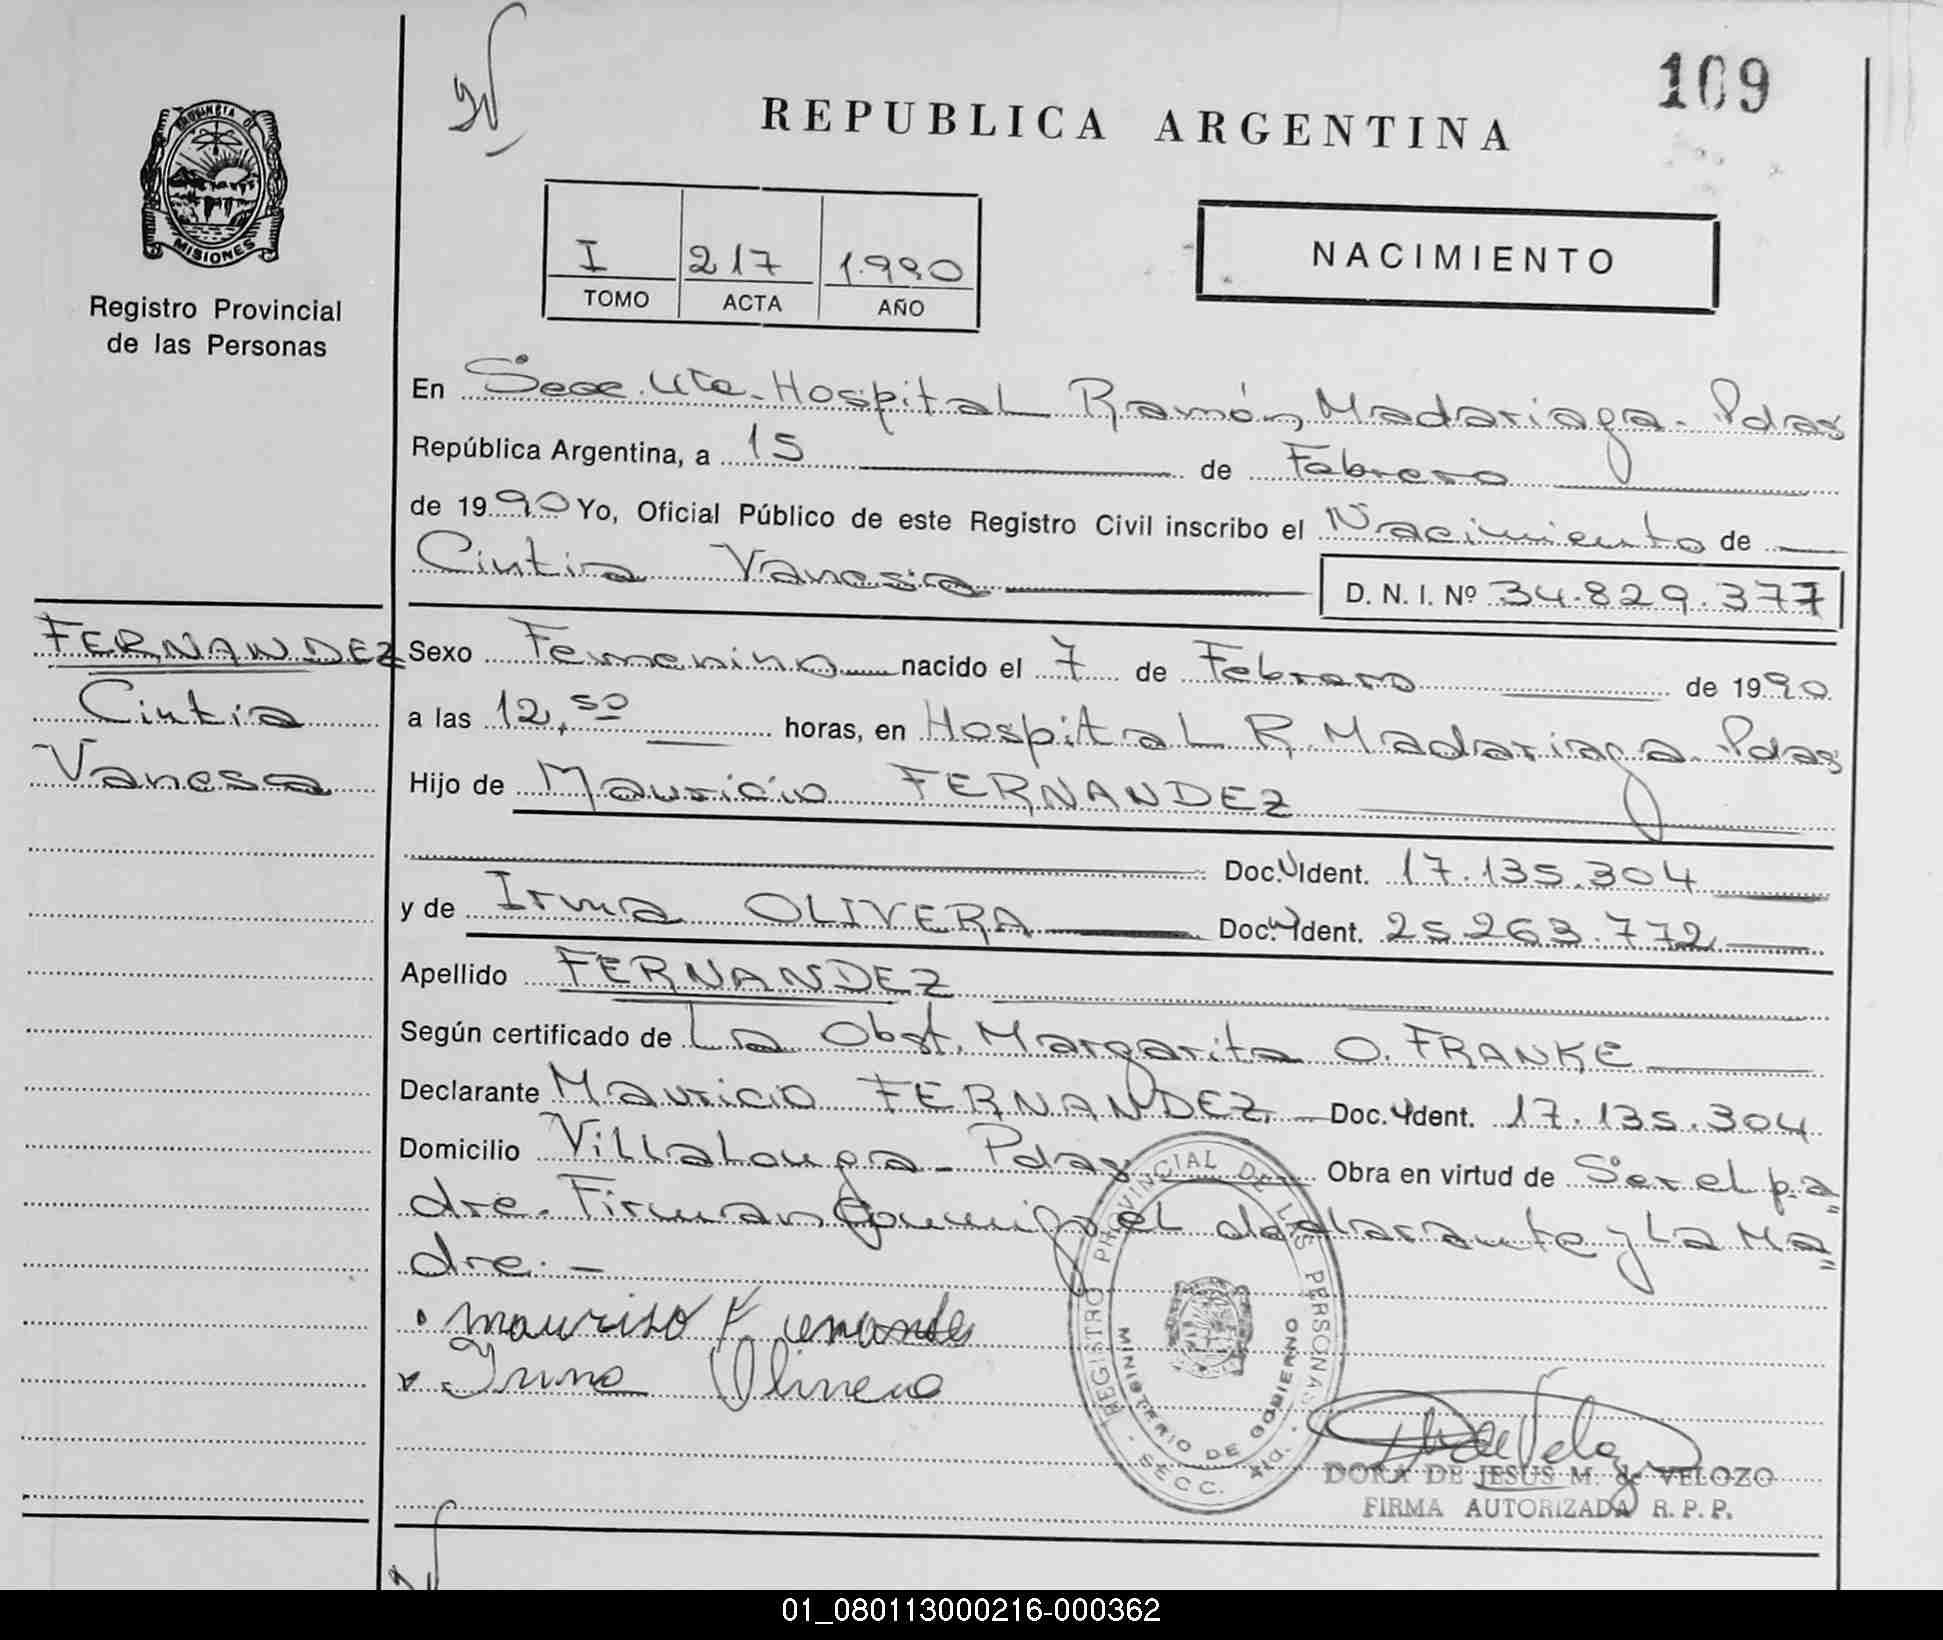 109
REPUBLICA ARGENTINA
PROVINCIA DE
MISIONES
Registro Provincial
de las Personas
I 217 1.990
TOMO ACTA AÑO
NACIMIENTO
En Secc. 4ta. Hospital Ramón Madariaga. Pdas
República Argentina, a 15 de Febrero
de 1990 Yo, Oficial Público de este Registro Civil inscribo el Nacimiento de
Cintia Vanesa D. N. I. Nº 34.829.377
FERNANDEZ
Cintia
Vanesa
Sexo Femenino nacido el 7 de Febrero de 1990
a las 12,50 horas, en Hospital R. Madariaga. Pdas
Hijo de Mauricio FERNANDEZ
Doc. Ident. 17.135.304
y de Irma OLIVERA Doc. Ident. 25.263.772
Apellido FERNANDEZ
Según certificado de La Obst. Margarita O. FRANKE
Declarante Mauricio FERNANDEZ. Doc. Ident. 17.135.304
Domicilio Villalonga - Pdas Obra en virtud de Ser el pa"
dre. Firman conmigo el declarante y la Ma"
dre. -
mauriso Fernande
Irma Olivera
REGISTRO PROVINCIAL DE LAS PERSONAS
MINISTERIO DE GOBIERNO
SECC. 4ta.
DORA DE JESUS M. de VELOZO
FIRMA AUTORIZADA R. P. P.
01_080113000216-000362